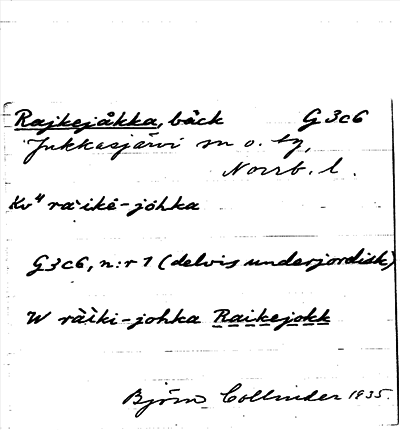 Rajkejåkka, bäck G3c6
Jukkasjärvi sn o. tg,
Norrb. l.
Kv" ra'ikē-jóhka
G3c6, n:r 1 (delvis underjordisk)
W ràiki-johka Raikejokk
Björn Collinder 1935.